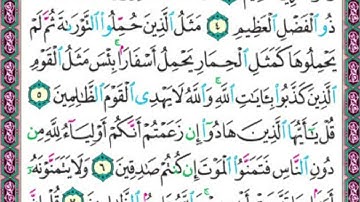 ذُو ٱلۡفَضۡلِ ٱلۡعَظِيمِ ٤ مَثَلُ ٱلَّذِينَ حُمِّلُواْ ٱلتَّوۡرَىٰةَ ثُمَّ لَمۡ
يَحۡمِلُوهَا كَمَثَلِ ٱلۡحِمَارِ يَحۡمِلُ أَسۡفَارَۢاۚ بِئۡسَ مَثَلُ ٱلۡقَوۡمِ
ٱلَّذِينَ كَذَّبُواْ بِـَٔايَٰتِ ٱللَّهِۚ وَٱللَّهُ لَا يَهۡدِي ٱلۡقَوۡمَ ٱلظَّٰلِمِينَ ٥
قُلۡ يَٰٓأَيُّهَا ٱلَّذِينَ هَادُوٓاْ إِن زَعَمۡتُمۡ أَنَّكُمۡ أَوۡلِيَآءُ لِلَّهِ مِن
دُونِ ٱلنَّاسِ فَتَمَنَّوُاْ ٱلۡمَوۡتَ إِن كُنتُمۡ صَٰدِقِينَ ٦ وَلَا يَتَمَنَّوۡنَهُۥٓ